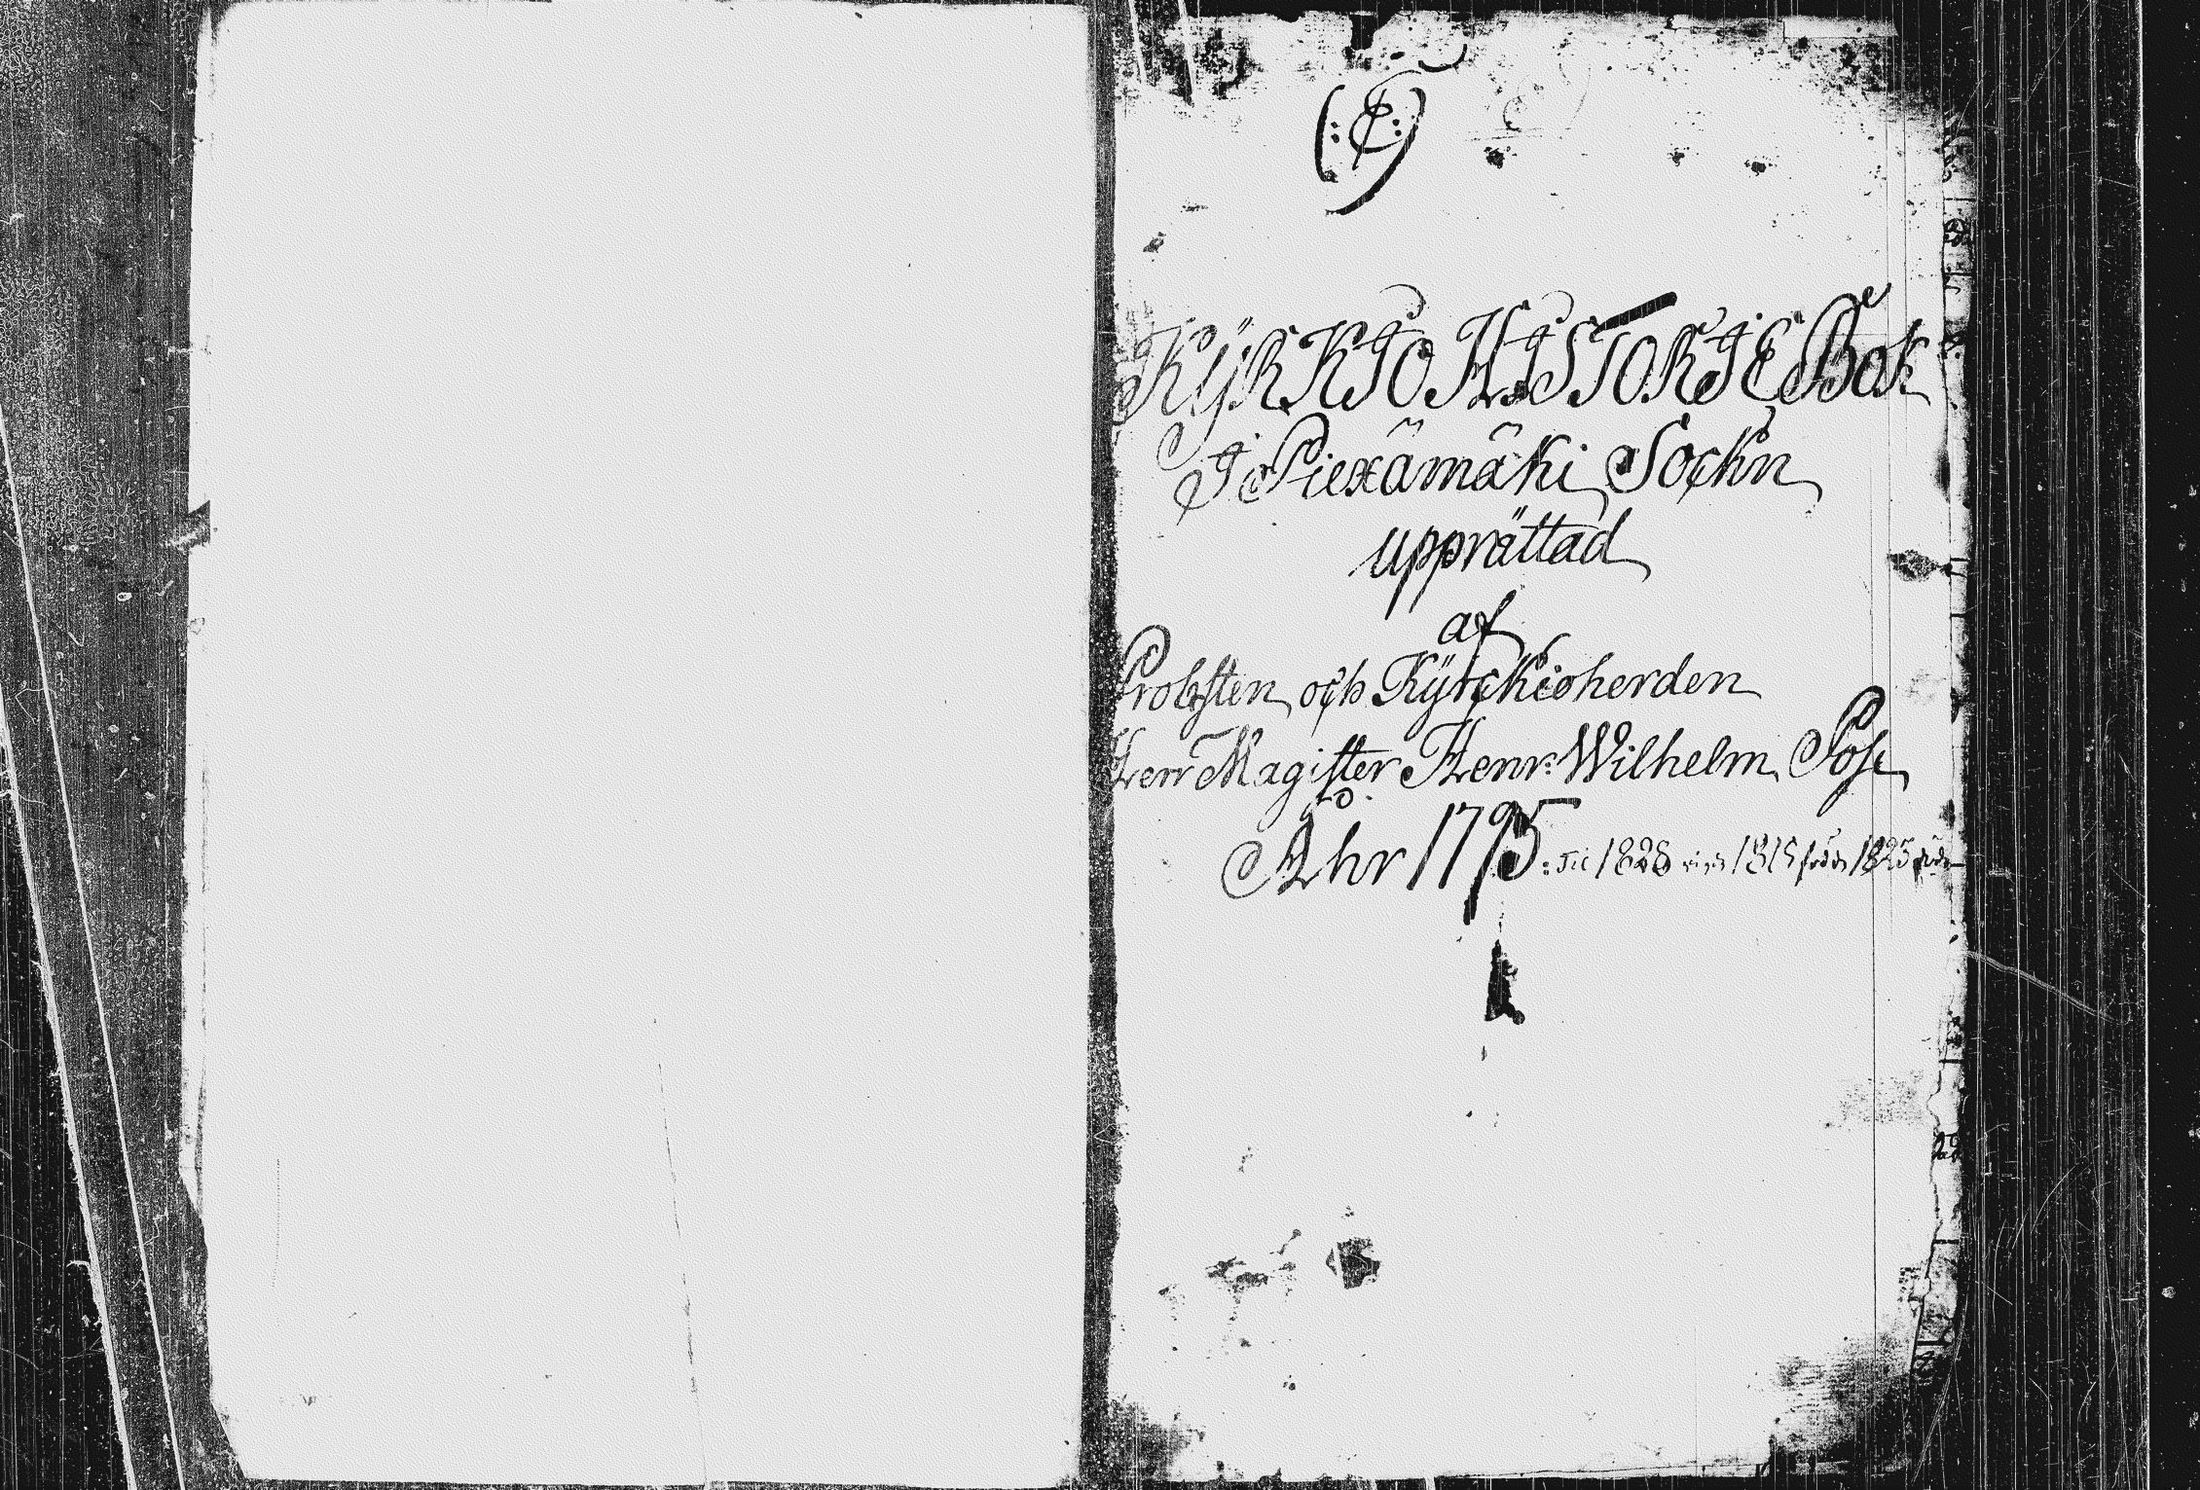 (:C:)
KYRKIO HISTORIE Bok
I Piexämäki Sockn
upprättad
af
Probsten och Kÿrckioherden
Herr Magister Henr: Wilhelm Pose
Åhr 1795. Til 1828 vigde 1815 födde 1825 döde